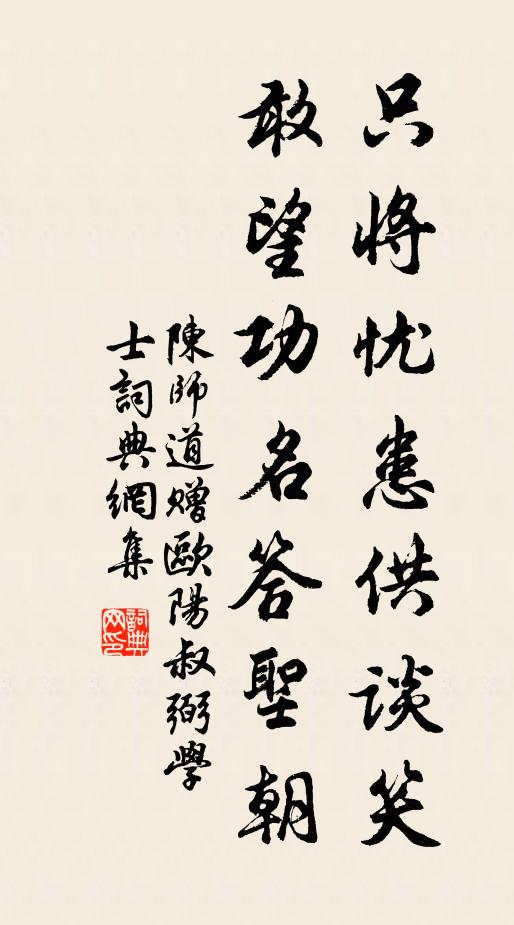 只将忧患供谈笑
敢望功名答聖朝
陳師道贈歐陽叔弼學
士詞典網集
詞典
网印